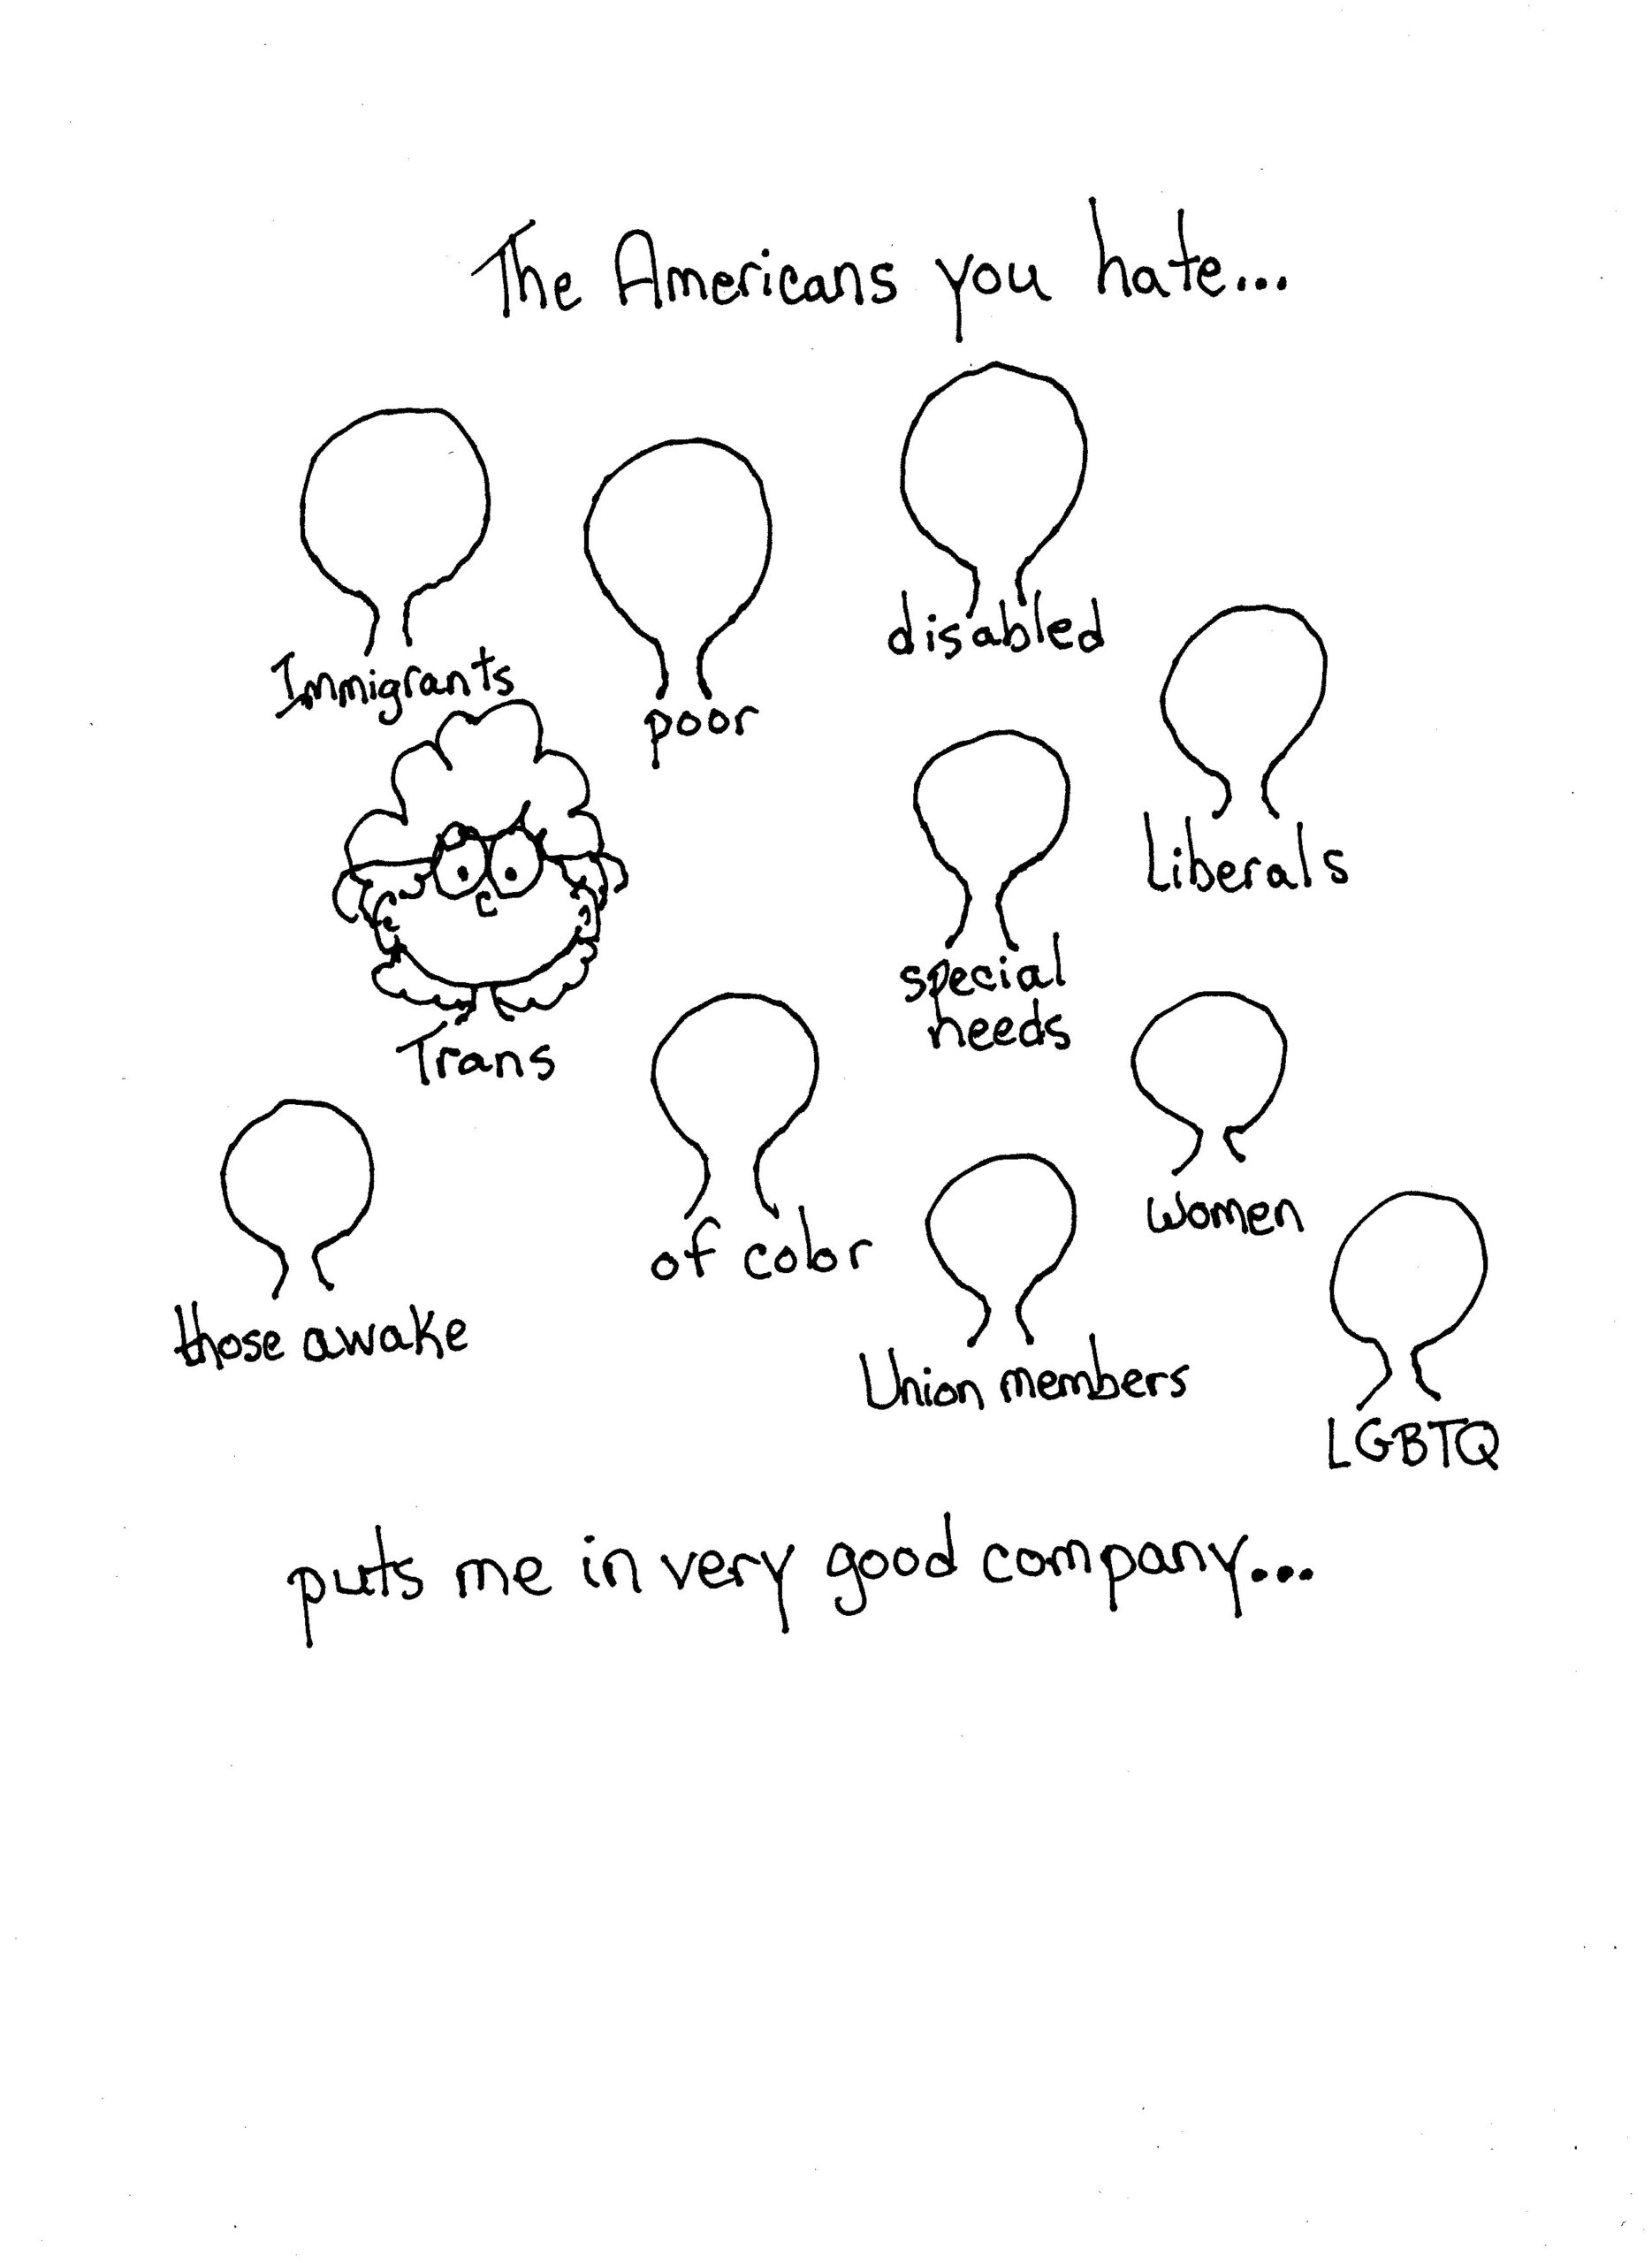 The Americans you hate...
Immigrants
poor
disabled
Liberals
Trans
special
needs
those awake
of color
women
Union members
LGBTQ
puts me in very good company...